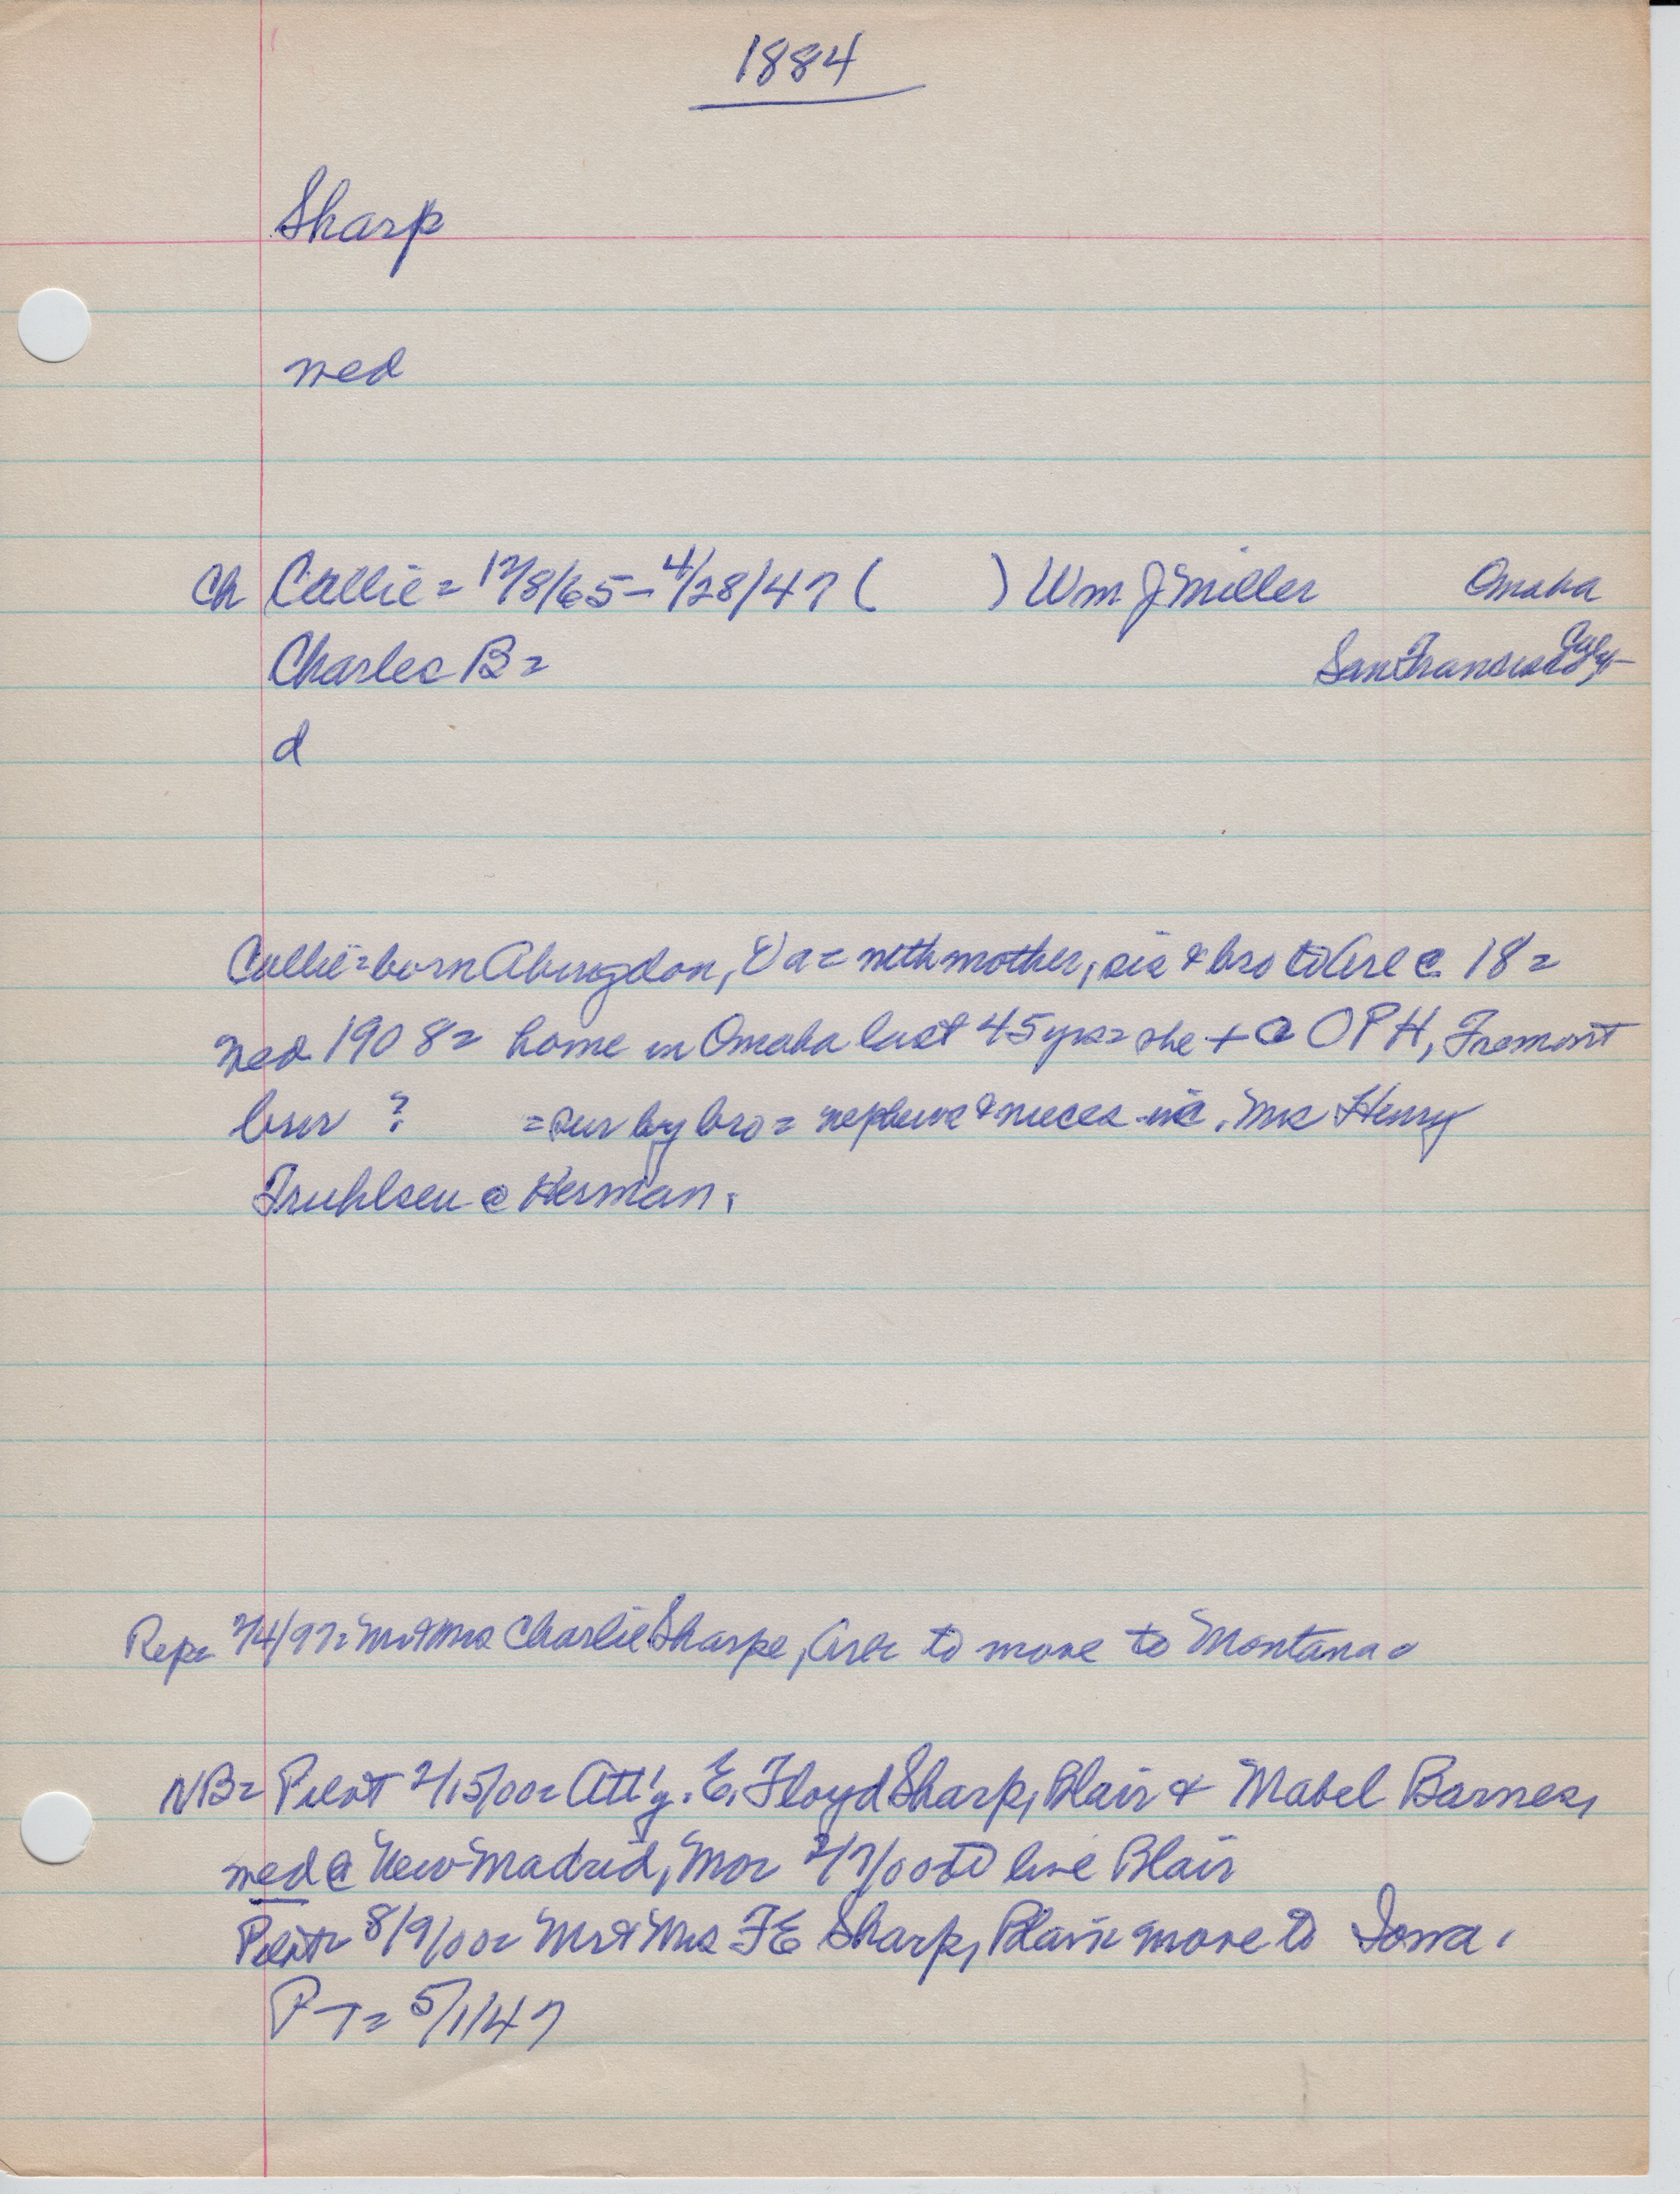 1884
Sharp
med
Ch Callie = 12/8/65 - 4/28/47 ( ) Wm J Miller Omaha
Charles B = San Fransisco, Calif
d
Callie = born Abingdon, Va = with mother, sis & bro to Arl @ 18 =
med 1908 = home in Omaha last 45 yrs = she + @ OPH, Fremont
bur ? = sur by bro = nephews & nieces inc. Mrs Henry
Truhlsen @ Herman.
Rep = 2/4/97 = Mr & Mrs Charlie Sharpe, Arl = to move to Montana.
NB = Pilot 2/15/00 = Att'y. E. Floyd Sharp, Blair & Mabel Barnes,
med @ New Madrid, Mo = 2/7/00 to live Blair
Pilot = 8/9/00 = Mr & Mrs F E Sharp, Blair move to Iowa.
P-T = 5/1/47